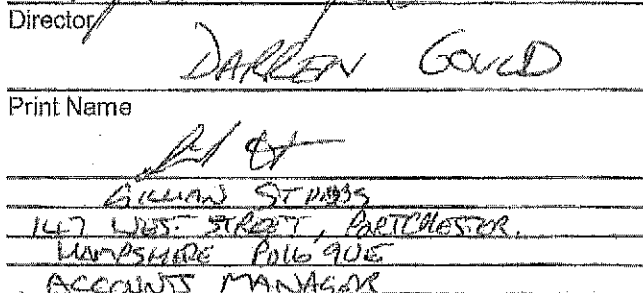 Director
DARREN GOULD
Print Name
GILLIAN
147 WEST STREET, PORTCHESTER.
HAMPSHIRE PO16 9UE
ACCOUNTS MANAGER